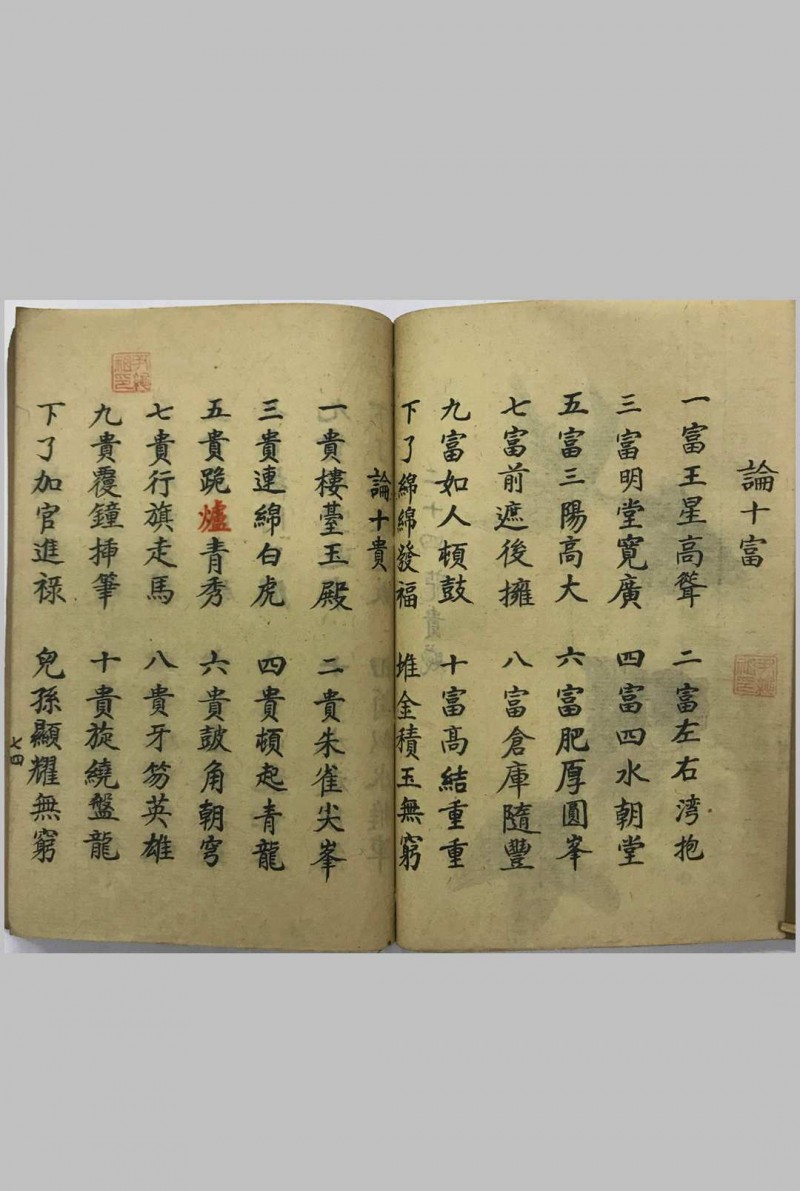 論十富
一富王星高聳 二富左右湾抱
三富明堂寬廣 四富四水朝堂
五富三陽高大 六富肥厚圓峯
七富前遮後擁 八富倉庫隨豐
九富如人頓鼓 十富髙結重重
下了綿綿發福 堆金積玉無窮
論十貴
一貴樓臺玉殿 二貴朱雀尖峯
三貴連綿白虎 四貴頓起青龍
五貴跪爐青秀 六貴皷角朝穹
七貴行旗走馬 八貴牙笏英雄
九貴覆鐘揷筆 十貴旋繞盤龍
下了加官進祿 兒孫顯耀無窮
七四